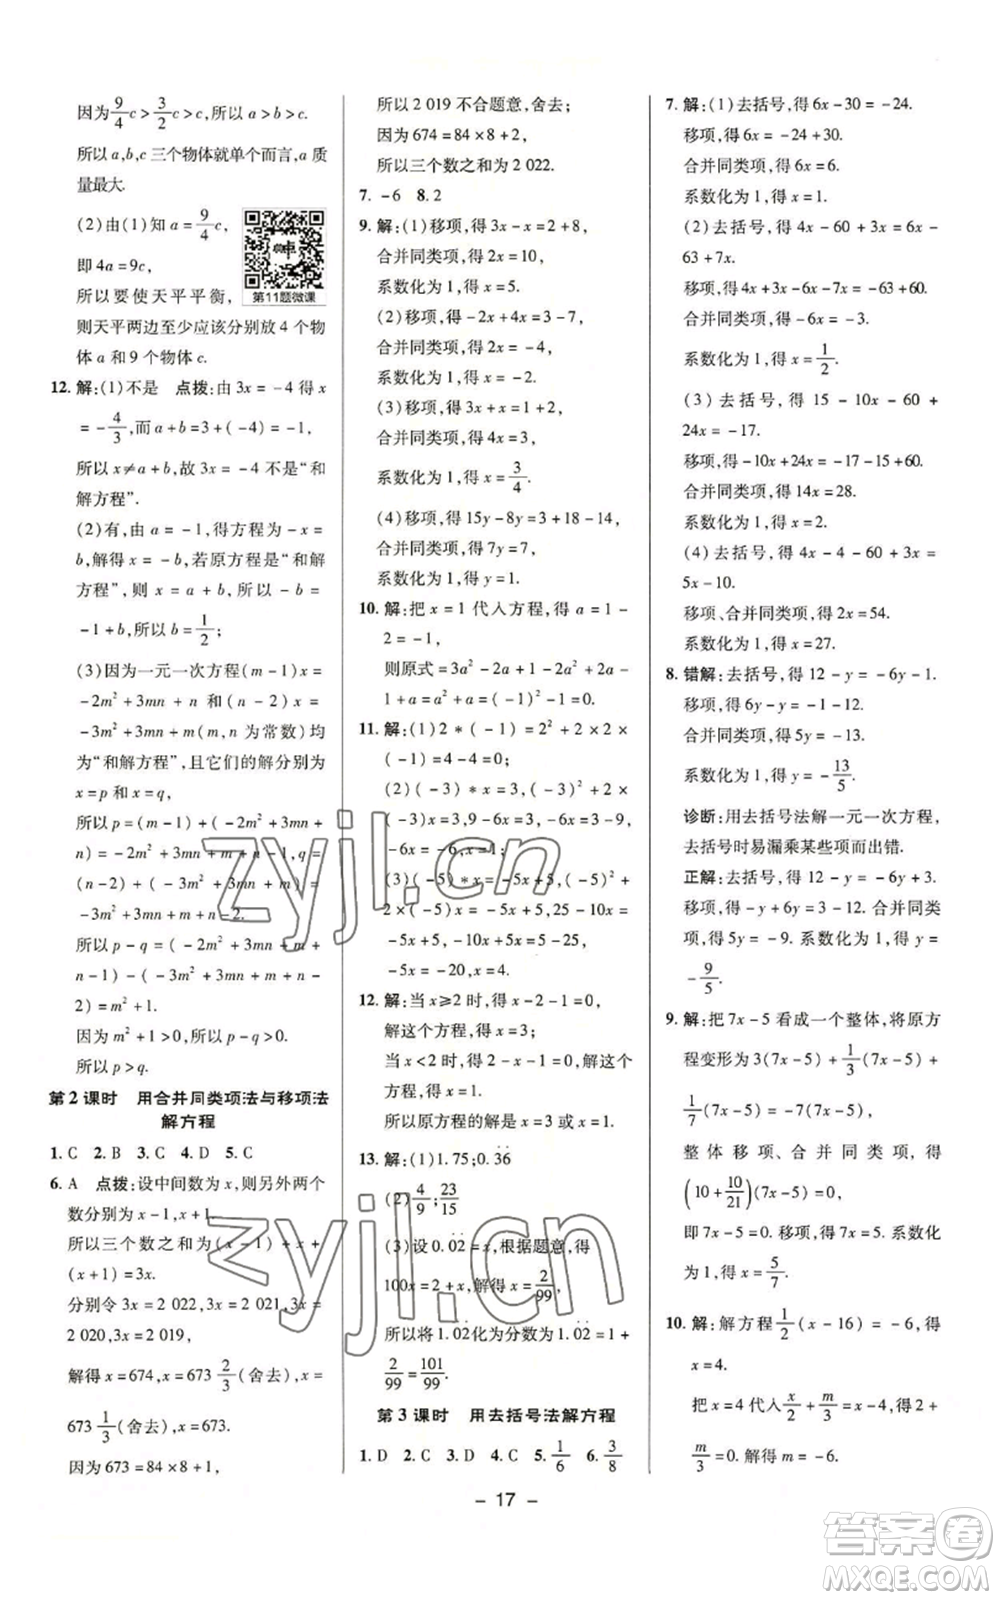 因为9/4c>3/2c>c,所以a>b>c.
所以a,b,c三个物体就单个而言,a质
量最大.
(2)由(1)知a=9/4c,
即4a=9c,
所以要使天平平衡,
第11题微课
则天平两边至少应该分别放4个物
体a和9个物体c.
12.解:(1)不是 点拨:由3x=-4得x
=-4/3,而a+b=3+(-4)=-1,
所以x≠a+b,故3x=-4不是“和
解方程”.
(2)有,由a=-1,得方程为-x=
b,解得x=-b,若原方程是“和解
方程”,则x=a+b,所以-b=
-1+b,所以b=1/2;
(3)因为一元一次方程(m-1)x=
-2m²+3mn+n和(n-2)x=
-3m²+3mn+m(m,n为常数)均
为“和解方程”,且它们的解分别为
x=p和x=q,
所以p=(m-1)+(-2m²+3mn+
n)=-2m²+3mn+m+n-1,q=
(n-2)+(-3m²+3mn+m)=
-3m²+3mn+m+n-2.
所以p-q=(-2m²+3mn+m+
n-1)-(-3m²+3mn+m+n-
2)=m²+1.
因为m²+1>0,所以p-q>0.
所以p>q.
第2课时 用合并同类项法与移项法
解方程
1.C 2.B 3.C 4.D 5.C
6.A 点拨:设中间数为x,则另外两个
数分别为x-1,x+1.
所以三个数之和为(x-1)+x+
(x+1)=3x.
分别令3x=2 022,3x=2 021,3x=
2 020,3x=2 019,
解得x=674,x=673 2/3(舍去),x=
673 1/3(舍去),x=673.
因为673=84×8+1,
所以2 019不合题意,舍去;
因为674=84×8+2,
所以三个数之和为2 022.
7.-6 8.2
9.解:(1)移项,得3x-x=2+8,
合并同类项,得2x=10,
系数化为1,得x=5.
(2)移项,得-x+3x=3-7,
合并同类项,得2x=-4,
系数化为1,得x=-2.
(3)移项,得x+3x=1+2,
合并同类项,得4x=3,
系数化为1,得x=3/4.
(4)移项,得15y-8y=3+18-14,
合并同类项,得7y=7,
系数化为1,得y=1.
10.解:把x=1代入方程,得a=1-
2=-1,
则原式=3a²-2a+1-2a²+2a-
1+a=a²+a=(-1)²-1=0.
11.解:(1)2*(-1)=2²+2×2×
(-1)=4-4=0.
(2)(-3)*x=3,(-3)²+2×
(-3)x=3,9-6x=3,-6x=3-9,
-6x=-6,x=1.
(3)(-5)*x=-5x+5,(-5)²+
2×(-5)x=-5x+5,25-10x=
-5x+5,-10x+5x=5-25,
-5x=-20,x=4.
12.解:当x≥2时,得x-2-1=0,
解这个方程,得x=3;
当x<2时,得2-x-1=0,解这个方
程,得x=1.
所以原方程的解为x=3或x=1.
13.解:(1)1.75;0.3̇6̇
(2)4/9;23/15
(3)设0.0̇2̇=x,根据题意,得
100x=2+x,解得x=2/99,
所以将1.0̇2̇化为分数为1.0̇2̇=1+
2/99=101/99.
第3课时 用去括号法解方程
1.D 2.C 3.D 4.C 5.1/6 6.3/8
7.解:(1)去括号,得6x-30=-24.
移项,得6x=-24+30.
合并同类项,得6x=6.
系数化为1,得x=1.
(2)去括号,得4x+60=10x+
63-6.
移项,得4x-10x=-60+63-6.
合并同类项,得-6x=-3.
系数化为1,得x=1/2.
(3)去括号,得15-10x-60+
24x=-17.
移项,得-10x+24x=-17-15+60.
合并同类项,得14x=28.
系数化为1,得x=2.
(4)去括号,得6x-4-60+3x=
5x-10.
移项、合并同类项,得2x=54.
系数化为1,得x=27.
8.错解:去括号,得12-y=-6y-1.
移项,得6y-y=-1-12.
合并同类项,得5y=-13.
系数化为1,得y=-13/5.
诊断:用去括号法解一元一次方程,
去括号时易漏乘某些项而出错.
正解:去括号,得12-y=-6y+3.
移项,得-y+6y=3-12.合并同类
项,得5y=-9.系数化为1,得y=
-9/5.
9.解:把7x-5看成一个整体,将原方
程变形为3(7x-5)+1/3(7x-5)+
1/7(7x-5)=-7(7x-5).
整体移项、合并同类项,得
(10+10/21)(7x-5)=0,
即7x-5=0.移项,得7x=5.系数化
为1,得x=5/7.
10.解:解方程1/2(x-16)=-6,得
x=4.
把x=4代入x/2+m/3=x-4,得2+
m/3=0.解得m=-6.
- 17 -
zyjl.cn
zyjl.cn
答案圈
MXQE.COM